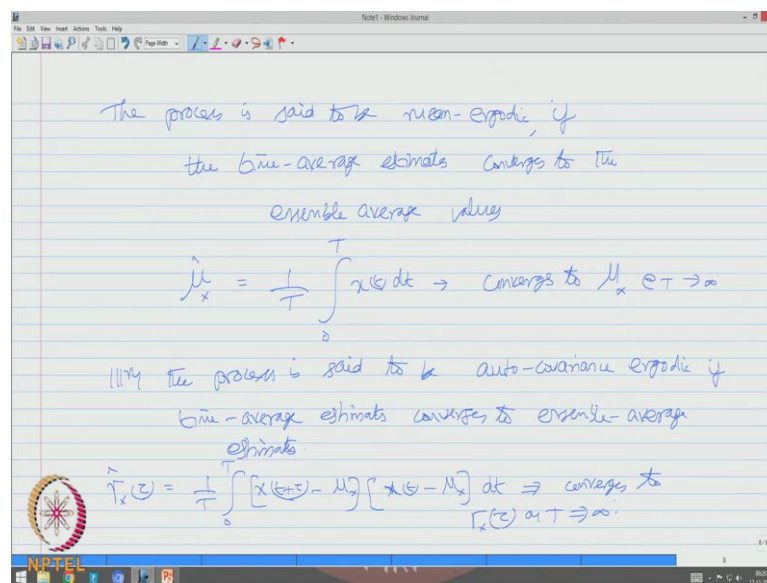 Note1 - Windows Journal
File Edit View Insert Actions Tools Help
Page Width
The process is said to be mean-ergodic, if
the time-average estimates converges to the
ensemble average values
μ̂x = 1/T ∫₀ᵀ x(t) dt → converges to μx @ T ⇒ ∞
IIIly the process is said to be auto-covariance ergodic if
time-average estimates converges to ensemble-average
estimates.
Γ̂x(τ) = 1/T ∫₀ᵀ [x(t+τ) - μx] [x(t) - μx] dt ⇒ converges to
Γx(τ) as T ⇒ ∞.
NPTEL